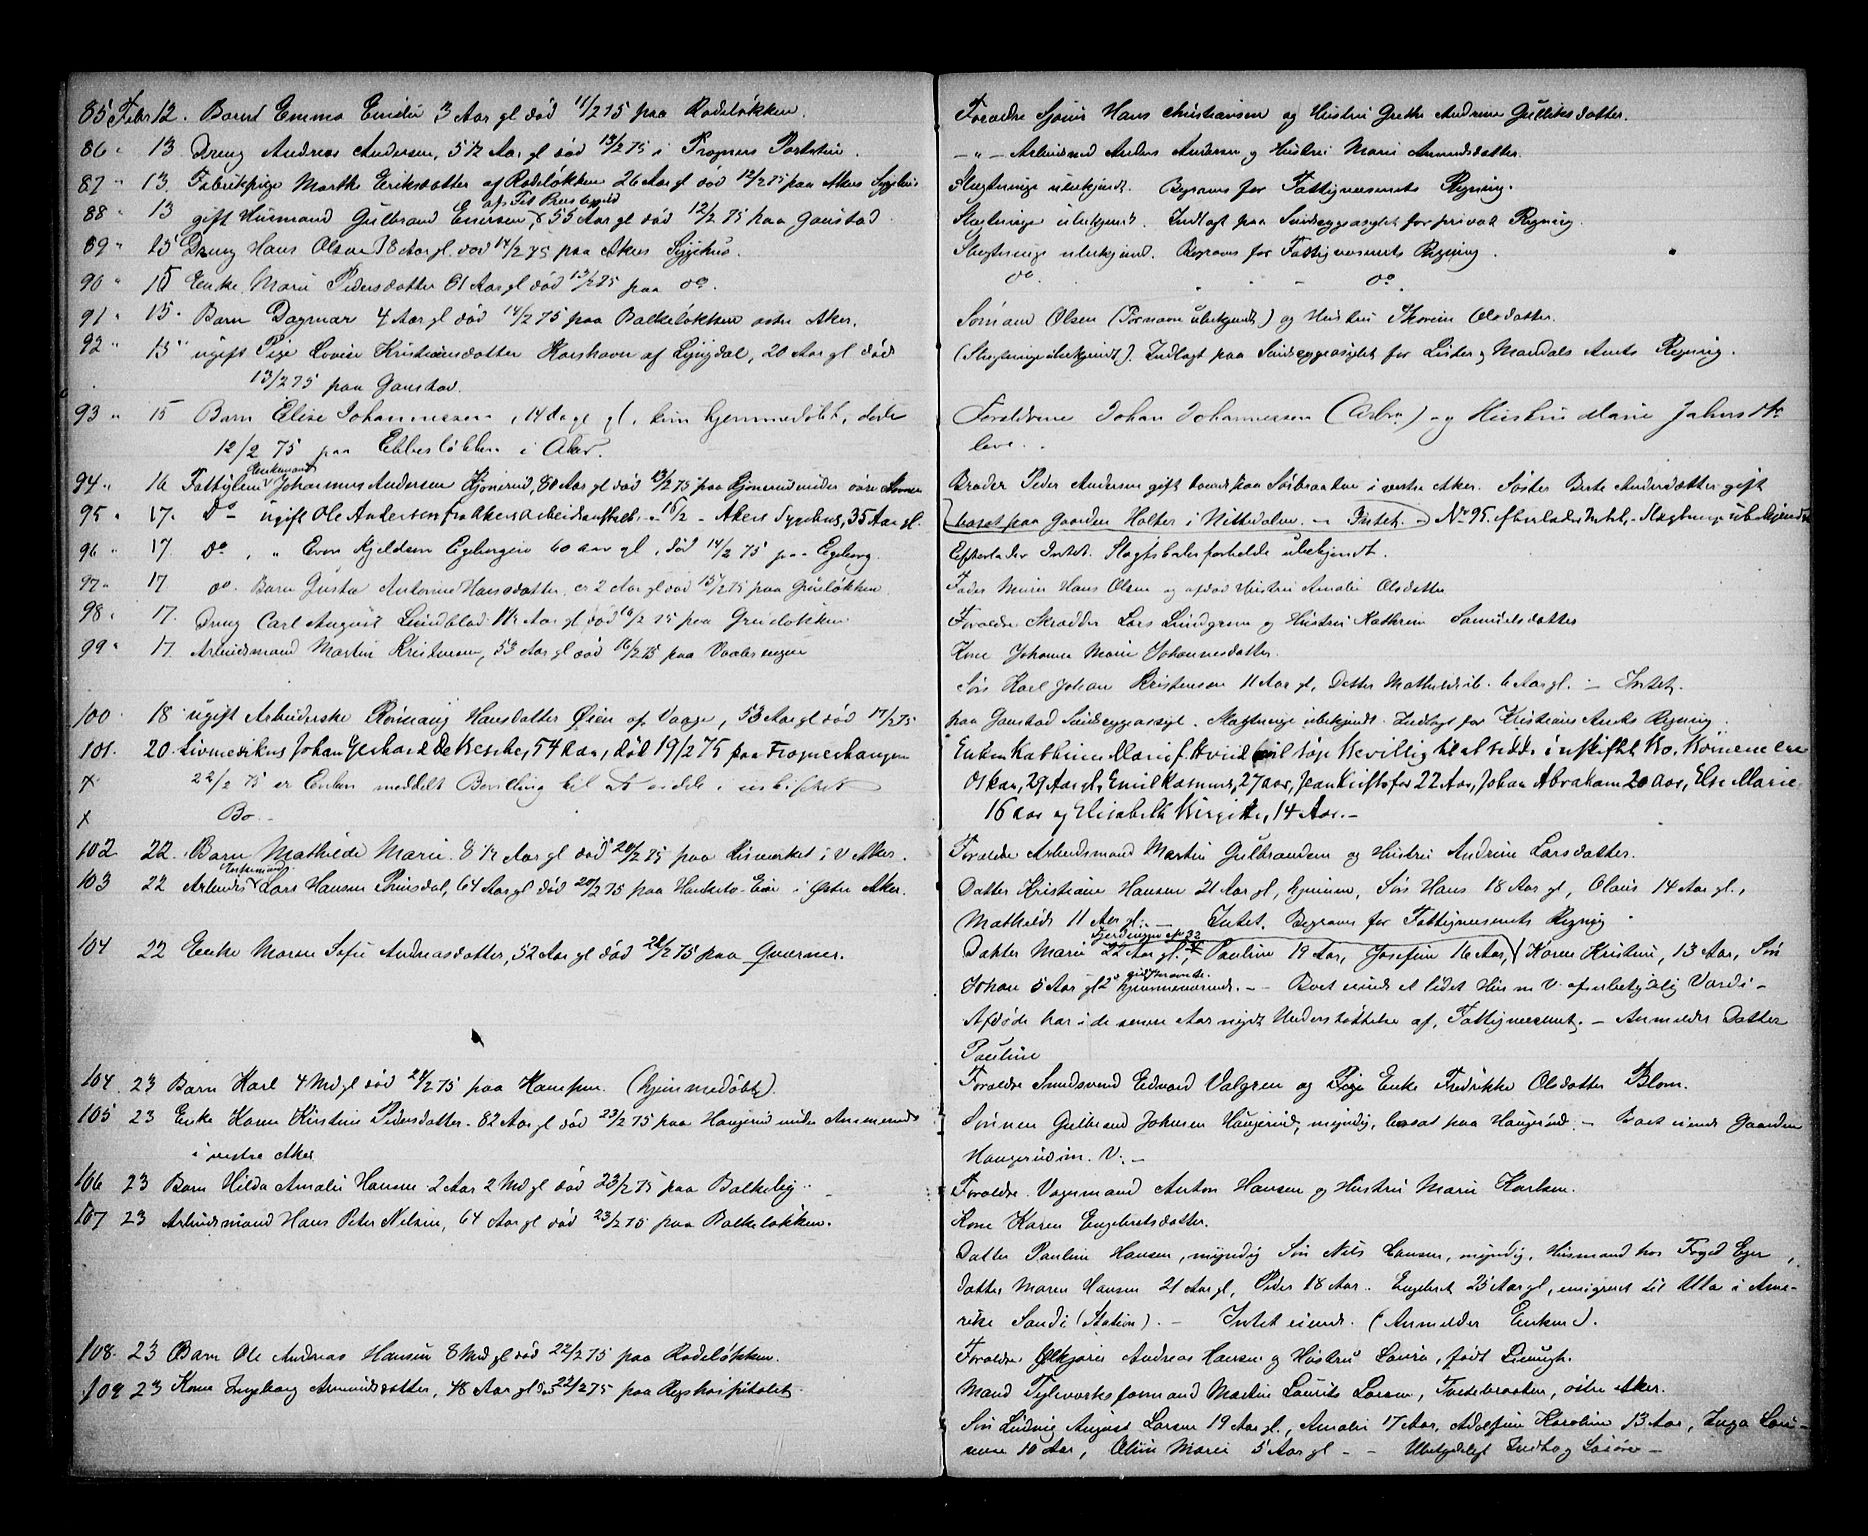 85 Febr 12. Barnet Emma Emilie 3 Aar gl død 11/2 75 paa Rodeløkken.
86 " 13 Dreng Andreas Andersen, 5 1/2 Aar gl død 13/2 75 i Frogners
87 " 13. Fabrikpige Marthe Eriksdatter af Rodeløkken 26 Aar gl død 12/2 75 paa Akers Sygehus
88 " 13 gift Husmand Gulbrand Enersen, 55 Aar gl død 12/2 75 paa Gaustad.
89 " 15 Dreng Hans Olsen 18 Aar gl. død 14/2 75 paa Akers Sygehus.
90 " 15 Enke Marie Pedersdatter 61 Aar gl død 13/2 75 paa do.
91 " 15. Barn Dagmar 4 Aar gl død 14/2 75 paa Balkeløkken østre Aker.
92 " 15 ugift Pige Lovise Kristiansdatter Korshavn af Lyngdal, 20 Aar gl død
13/2 75 paa Gaustad.
93 " 15 Barn Elise Johannessen, 14 dage gl, kun hjemmedøbt, døde
12/2 75 paa Ebbesløkken i Aker.
Enkemand
94 " 16 Fattiglem Johannes Andersen Kjønerud, 80 Aar gl død 13/2 75 paa Kjønerud under
95 " 17. Do ugift Ole Andersen fra Akers Arbeidsanstalt " 16/2 - Akers Sygehus, 35 Aar gl.
96 " 17. Do, " Even Kjeldsen Egebergeie 60 aar gl, død 14/2 75 paa Egeberg.
97 " 17 do. Barn Gusta Antonie Hansdatter, 2 Aar gl død 15/2 75 paa Grünløkken
98 " 17. Dreng Carl August Lundblad 1 1/2 Aar gl død 16/2 75 paa Grünløkken
99 " 17. Arbeidsmand Martin Kristensen, 53 Aar gl død 16/2 75 paa Vaalerengen
100 18 ugift Arbeiderske Rønnaug Hansdatter Øien af Vaage, 53 Aar gl død 17/2 75
101. 20. Livmedikus Johan Gerhard de Besche, 54 Aar, død 19/2 75 paa Frognerhaugen
x 22/2 75 er Enken meddelt Bevilling til at sidde i uskiftet
x Bo. -
102 22. Barn Mathilde Marie 8 1/2 Aar gl død 20/2 75 paa Risverket i V Aker.
Enkemand
103 22 Arbeids Lars Hansen Prinsdal, 64 Aar gl død 20/2 75 paa Hauketo Eie i Østre Aker.
104 22 Enke Maren Sofie Andreasdatter, 52 Aar gl død 20/2 75 paa Qværner.
104. 23 Barn Karl 4 Md gl død 21/2 75 paa Kampen. (hjemmedøbt).
105 23 Enke Karen Kirstine Pedersdatter. 82 Aar gl død 23/2 75 paa Haugerud under
i vestre Aker
106 23 Barn Hilda Amalie Hansen 2 Aar 2 Md gl død 23/2 75 paa Balkeby.
107 23 Arbeidsmand Hans Peter Nelsen, 64 Aar gl død 23/2 75 paa Balkeløkken.
108. 23 Barn Ole Andreas Hansen 8 Md gl død 22/2 75 paa Rodeløkken.
109 23 Kone Ingeborg Amundsdatter, 48 Aar gl død 22/2 75 paa Rigshospitalet.
Forældre Hans Christiansen og Hustru Grethe Andrine Gulliksdatter.
- " - Arbeidsmd Anders Andersen og Hustru Marie Amundsdatter.
Slægtninge ubekjendt. Begraves for Fattigvæsenets Regning.
Slægtninge ubekjendt. Indlagt paa Sindssygeasylet for privat Regning.
Slægtninge ubekjend. Begraves for Fattigvæsenets Regning.
do. do.
Sømand Olsen (Fornavn ubekjendt) og Hustru Olsdatter.
(Slægtninge ubekjendt). Indlagt paa Sindssygeasylet for Lister og Mandals Amts Regning.
Forældrene Johan Johannessen (Arbm) og Hustru Marie
leve.
Broder Peder Andersen gift boende paa i vestre Aker. Søster Berte Andersdatter gift
bosat paa Gaarden Holter i Nittedalen. - Intet. - No 95. efterlader Intet, - Slægtninge ubekjendte
Efterlader Intet. Slægtskabsforholde ubekjendt.
Fader Murer Hans Olsen og afdød Hustru Amalie Olsdatter
Forældre Skrædder Lars Lundgren og Hustru Kathrine Samuelsdatter
Kone Johanne Marie Johannesdatter.
Søn Karl Johan Kristensen 11 Aar gl, Datter Mathilde 6 Aar gl. - Intet.
paa Gaustad Sindssygeasyl. Slægtninge ubekjendt. Indlagt for Kristians Amts Regning.
Enken Kathrine Marie f. Hvid vil søge Bevilling til at sidde i uskiftet Bo. Børnene ere
Oskar, 29 Aar gl, Emil Rasmus, 27 aar, Jean Kristofer 22 Aar, Johan Abraham 20 aar, Else Marie
16 aar og Elisabeth Birgitte, 14 Aar. -
Forældre Arbeidsmand Martin Gulbrandsen og Hustru Andrine Larsdatter.
Datter Kristiane Hansen 21 Aar gl, hjemme, Søn Hans 18 Aar gl, Olaus 14 Aar gl.,
Mathilde 11 Aar gl. - Intet. Begraves for Fattigvæsenets Regning
Datter Marie 22 Aar gl., Pauline 19 Aar, Josefine 16 Aar, Karen Kristine, 13 Aar, Søn
Johan 5 Aar gl hjemmeværende. - - Boet eiende et lidet Hus m V. af ubetydelig Værdi -
Afdøde har i de senere Aar nydt Understøttelse af Fattigvæsenet. - Anmelder Datter
Pauline
Forældre Smedsvend Edvard Valgren og Enke Fredrikke Olsdatter Blom.
Sønnen Gulbrand Johnsen Haugerud, myndig, bosat paa Haugerud. - Boet eiende Gaarden
Haugerud m. V. -
Forældre Vognmand Anton Hansen og Hustru Marie Karlsen.
Kone Karen Engebretsdatter.
Datter Pauline Hansen, myndig Søn Nils Hansen, myndig, Husmand hos Foged Eger,
datter Maren Hansen 21 Aar gl, Peder 18 Aar. Engebret 25 Aar gl, emigreret til Utta i Ame-
rika Sandi (Station). - Intet eiende. (Anmelder Enken).
Forældre Ølkjører Andreas Hansen og Hustru Laura, født
Mand Teglverksformand Martin Laurits Larsen, Tvedebraaten, østre Aker.
Søn Ludvig August Larsen 19 Aar gl., Amalie 17 Aar, Adolfine Karoline 13 Aar, Inga
10 Aar, Oline Marie 5 Aar gl - - Ubetydeligt Indbo og Løsøre -